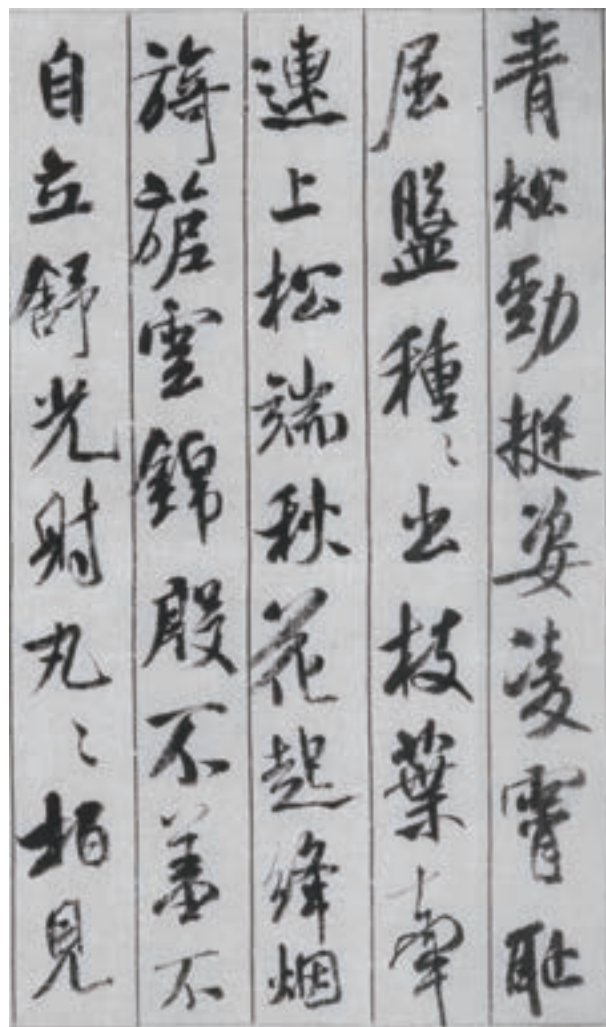 青松勁挺姿凌霄耻
屈盤種〻出枝葉牽
連上松端秋花起絳烟
旖旎雲錦殷不羞不
自立舒光射丸〻柏見